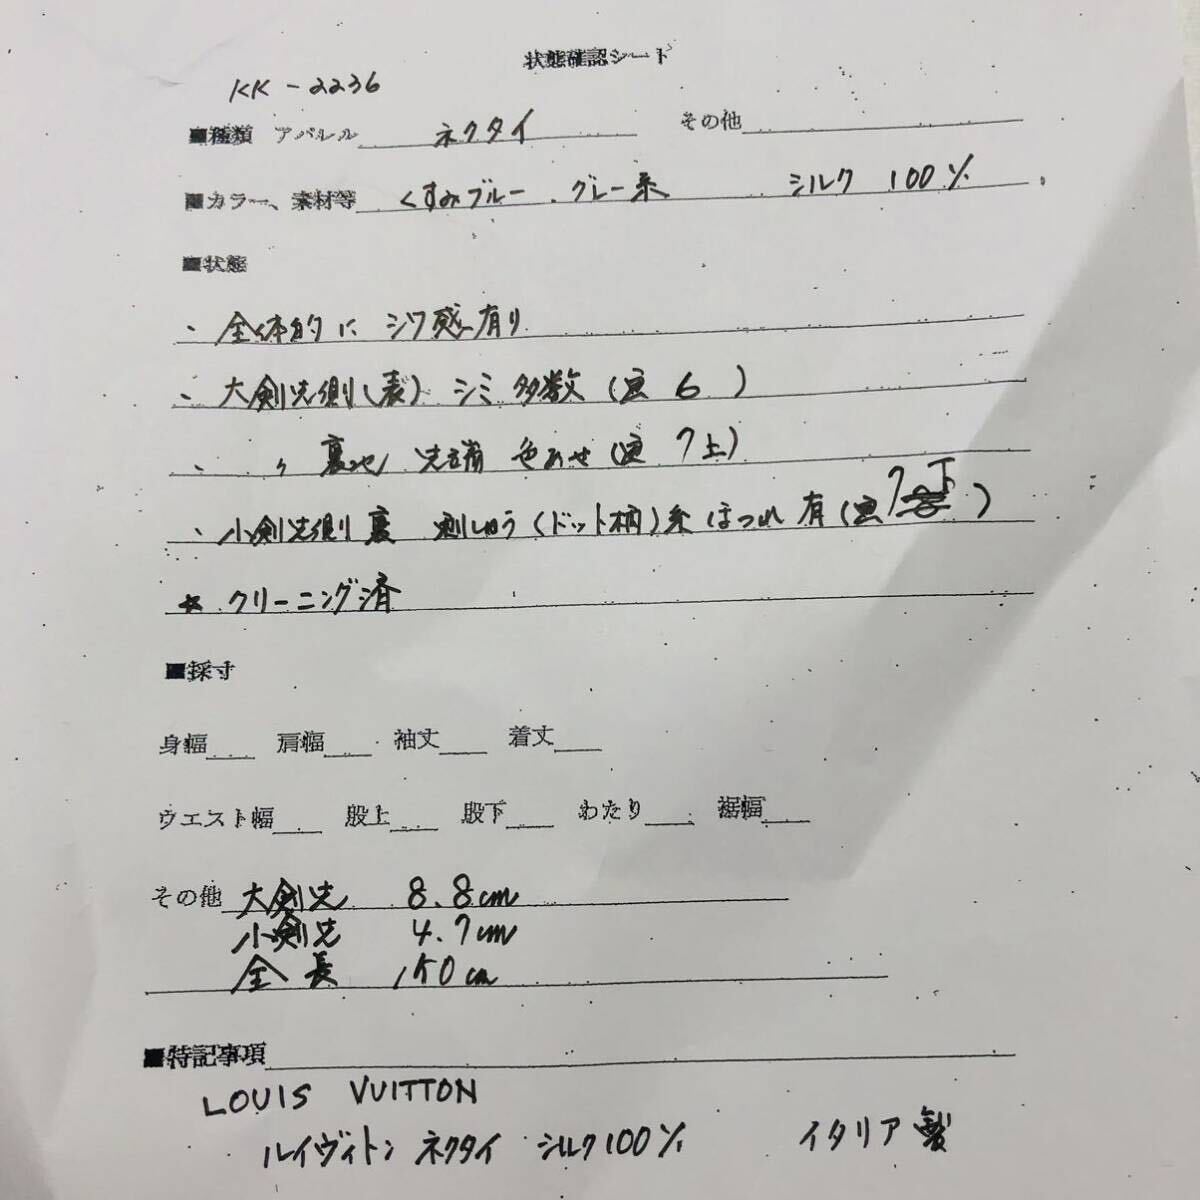 状態確認シート
KK-2236
■種類 アパレル ネクタイ その他
■カラー、素材等 くすみブルー、グレー系 シルク 100%
■状態
・全体的に シワ感有り
・大剣先側(表) シミ 多数(画 6 )
・ 〃 裏地 先端 色あせ(画 7上)
・小剣先側 裏 刺しゅう(ドット柄)糸 ほつれ 有(画 7下 )
☆ クリーニング済
■採寸
身幅 肩幅 袖丈 着丈
ウエスト幅 股上 股下 わたり 裾幅
その他 大剣先 8.8cm
小剣先 4.7cm
全長 150cm
■特記事項
LOUIS VUITTON
ルイヴィトン ネクタイ シルク100% イタリア製